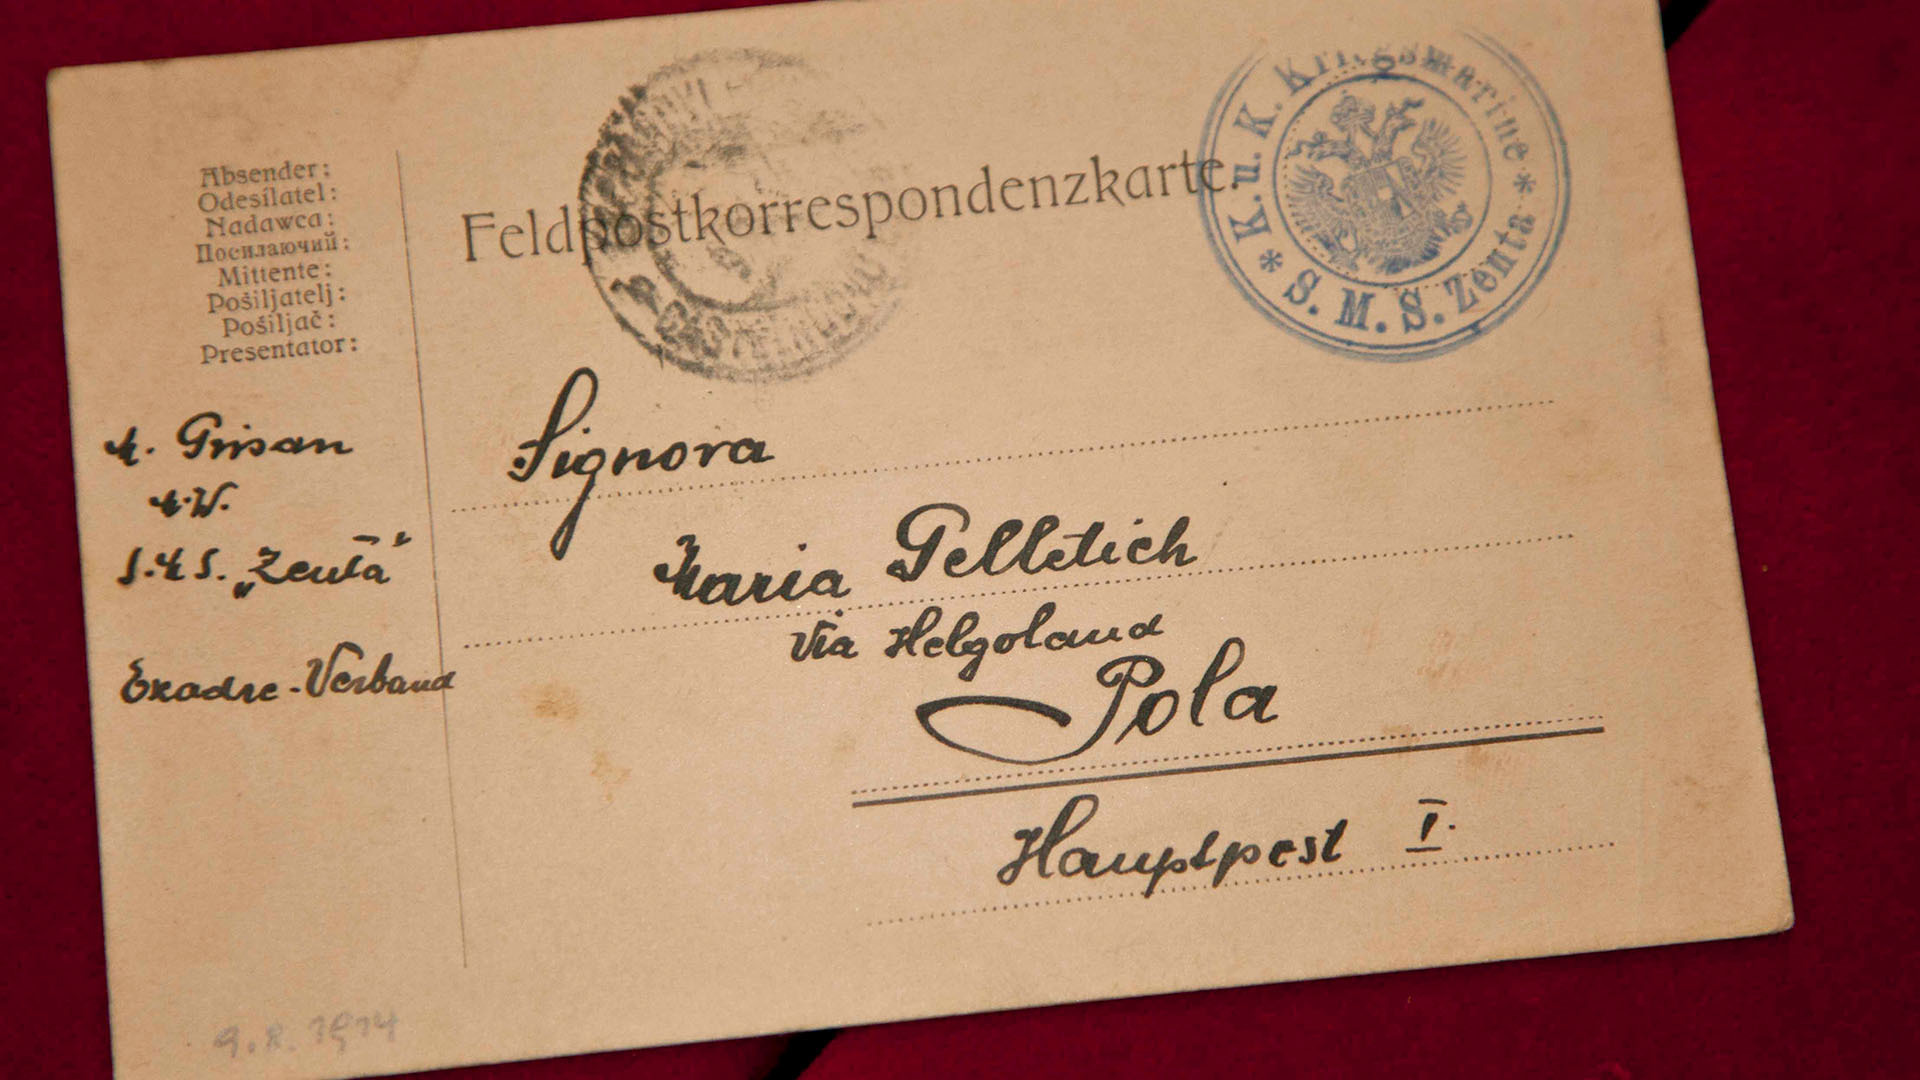 Absender:
Odesílatel:
Nadawca:
Посилаючий:
Mittente:
Pošiljatelj:
Pošiljač:
Presentator:
Feldpostkorrespondenzkarte.
K. u. K. Kriegsmarine
* S. M. S. Zenta *
Grisan
"Zenta"
Verband
Signora
Maria Pelletich
Via Helgoland
Pola
Hauptpost I.
1914